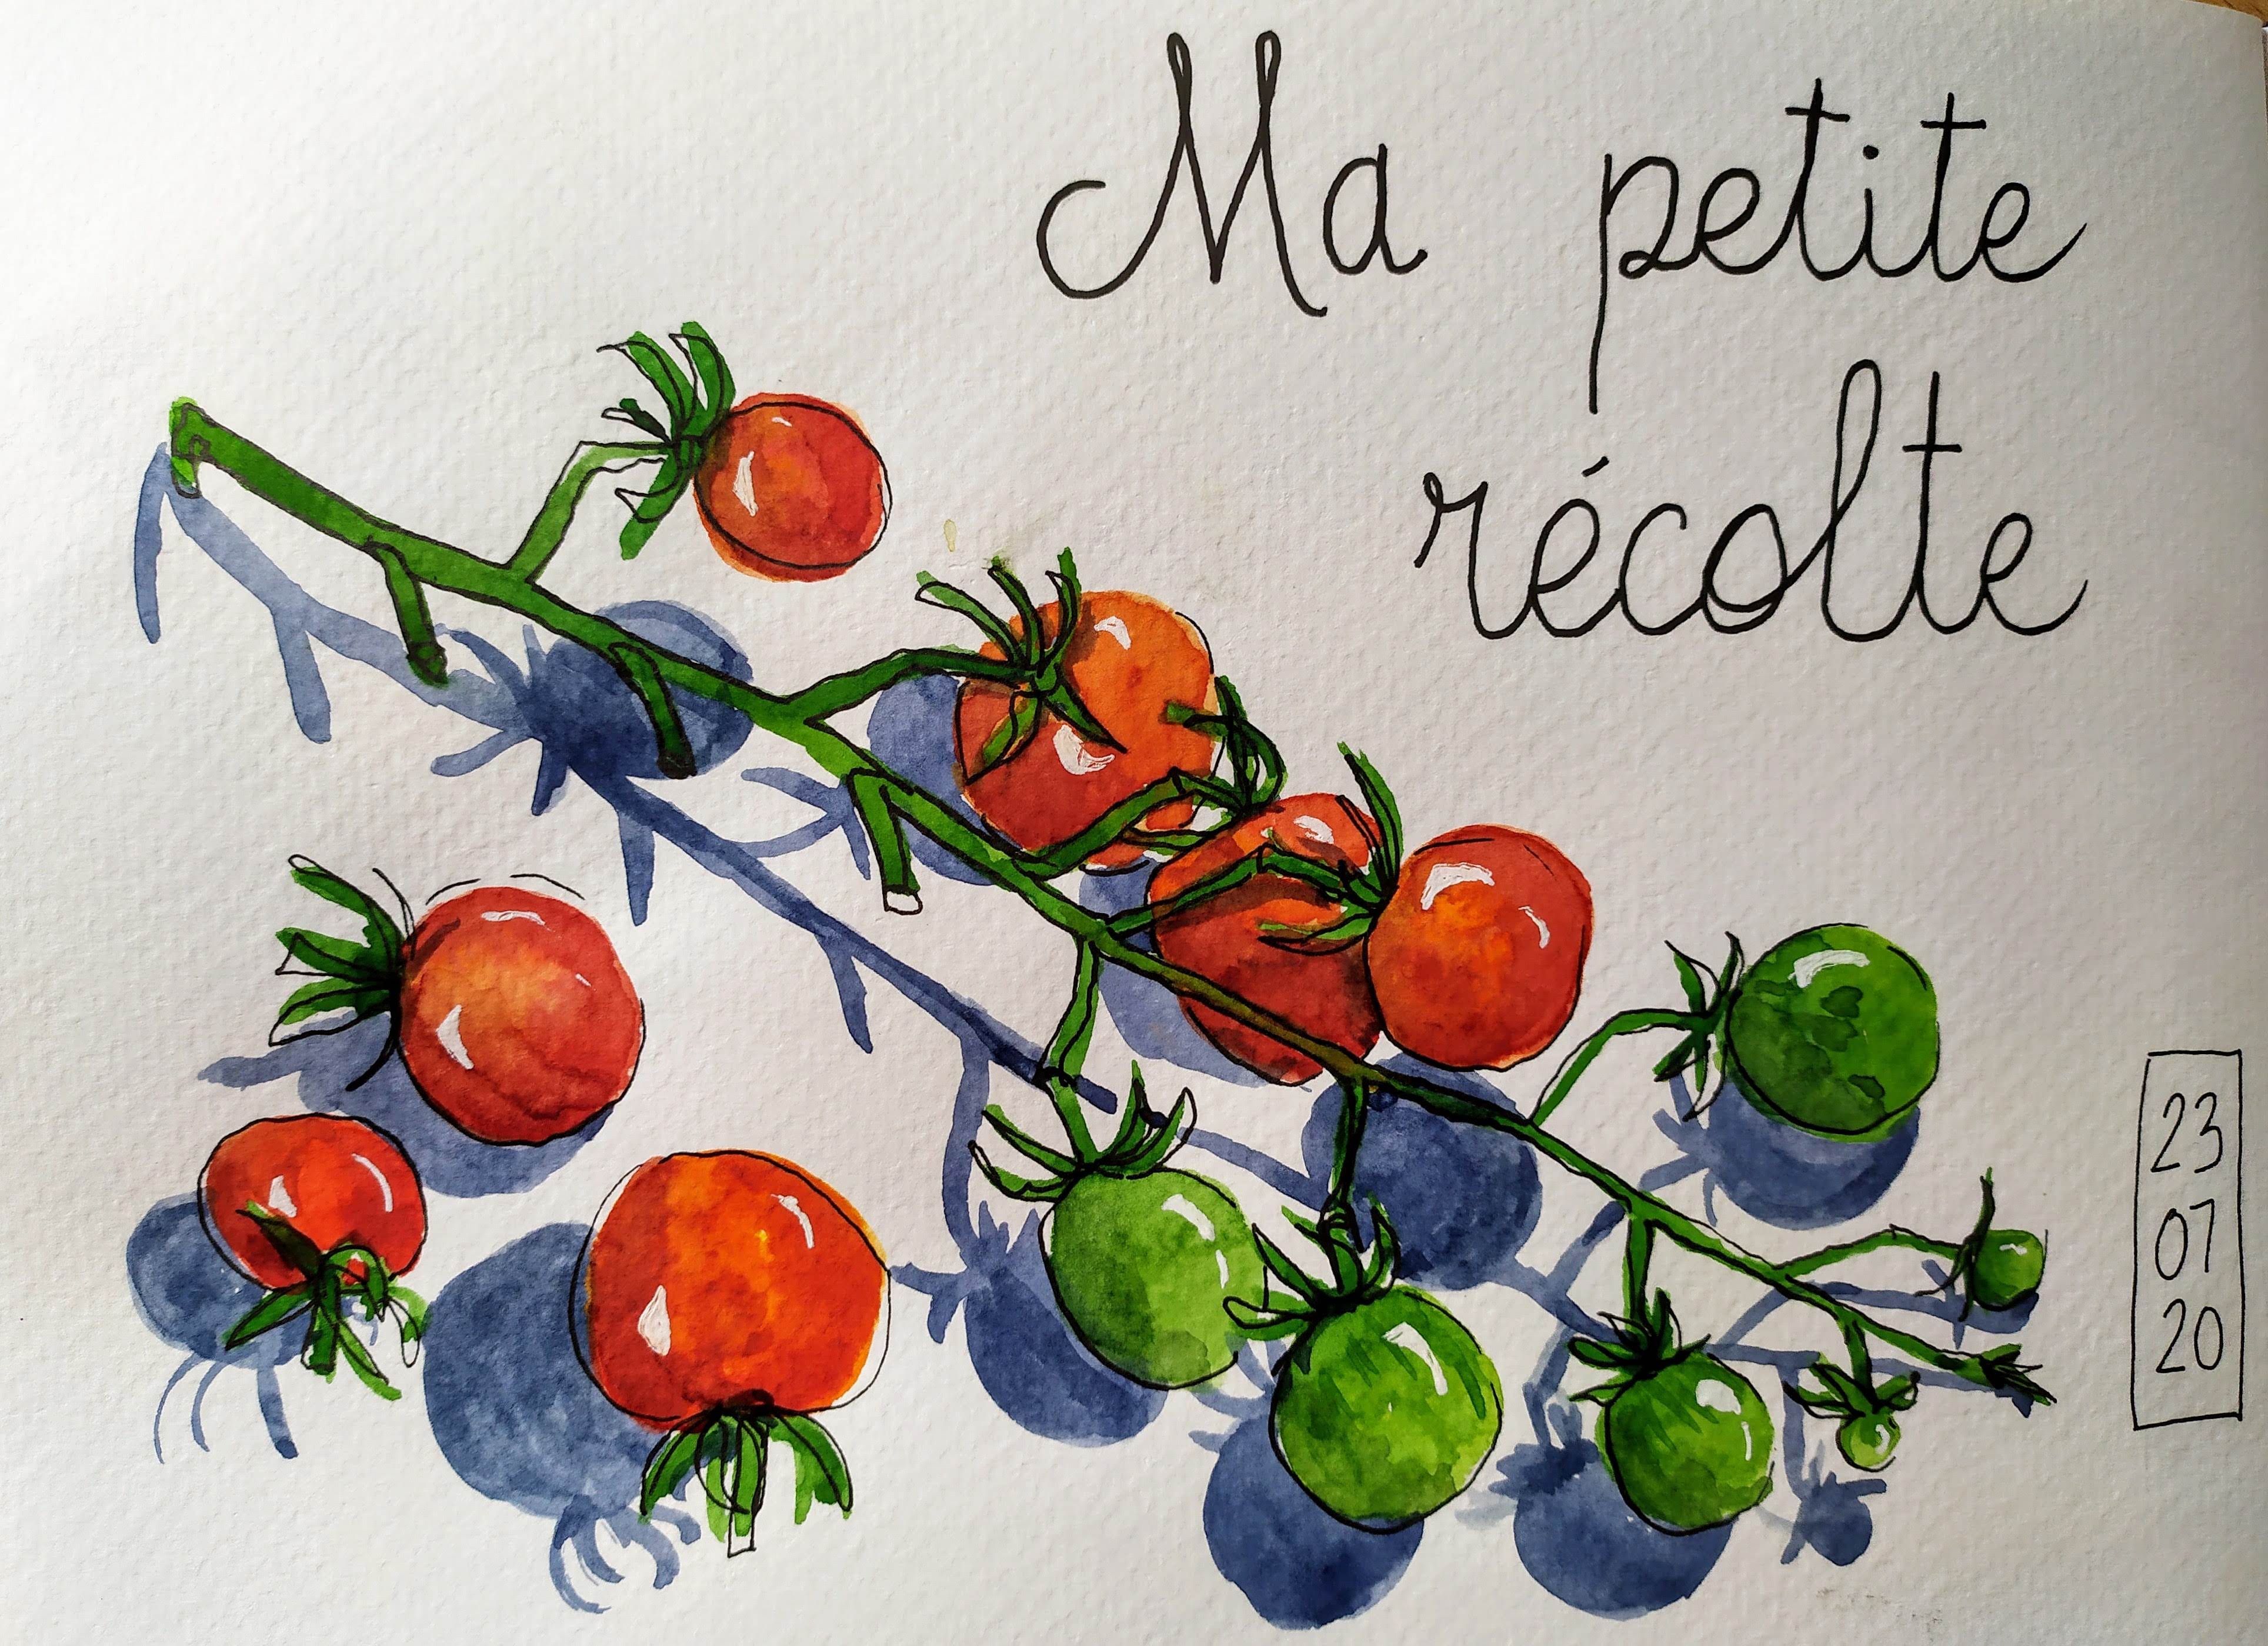 Ma petite
récolte
23
07
20